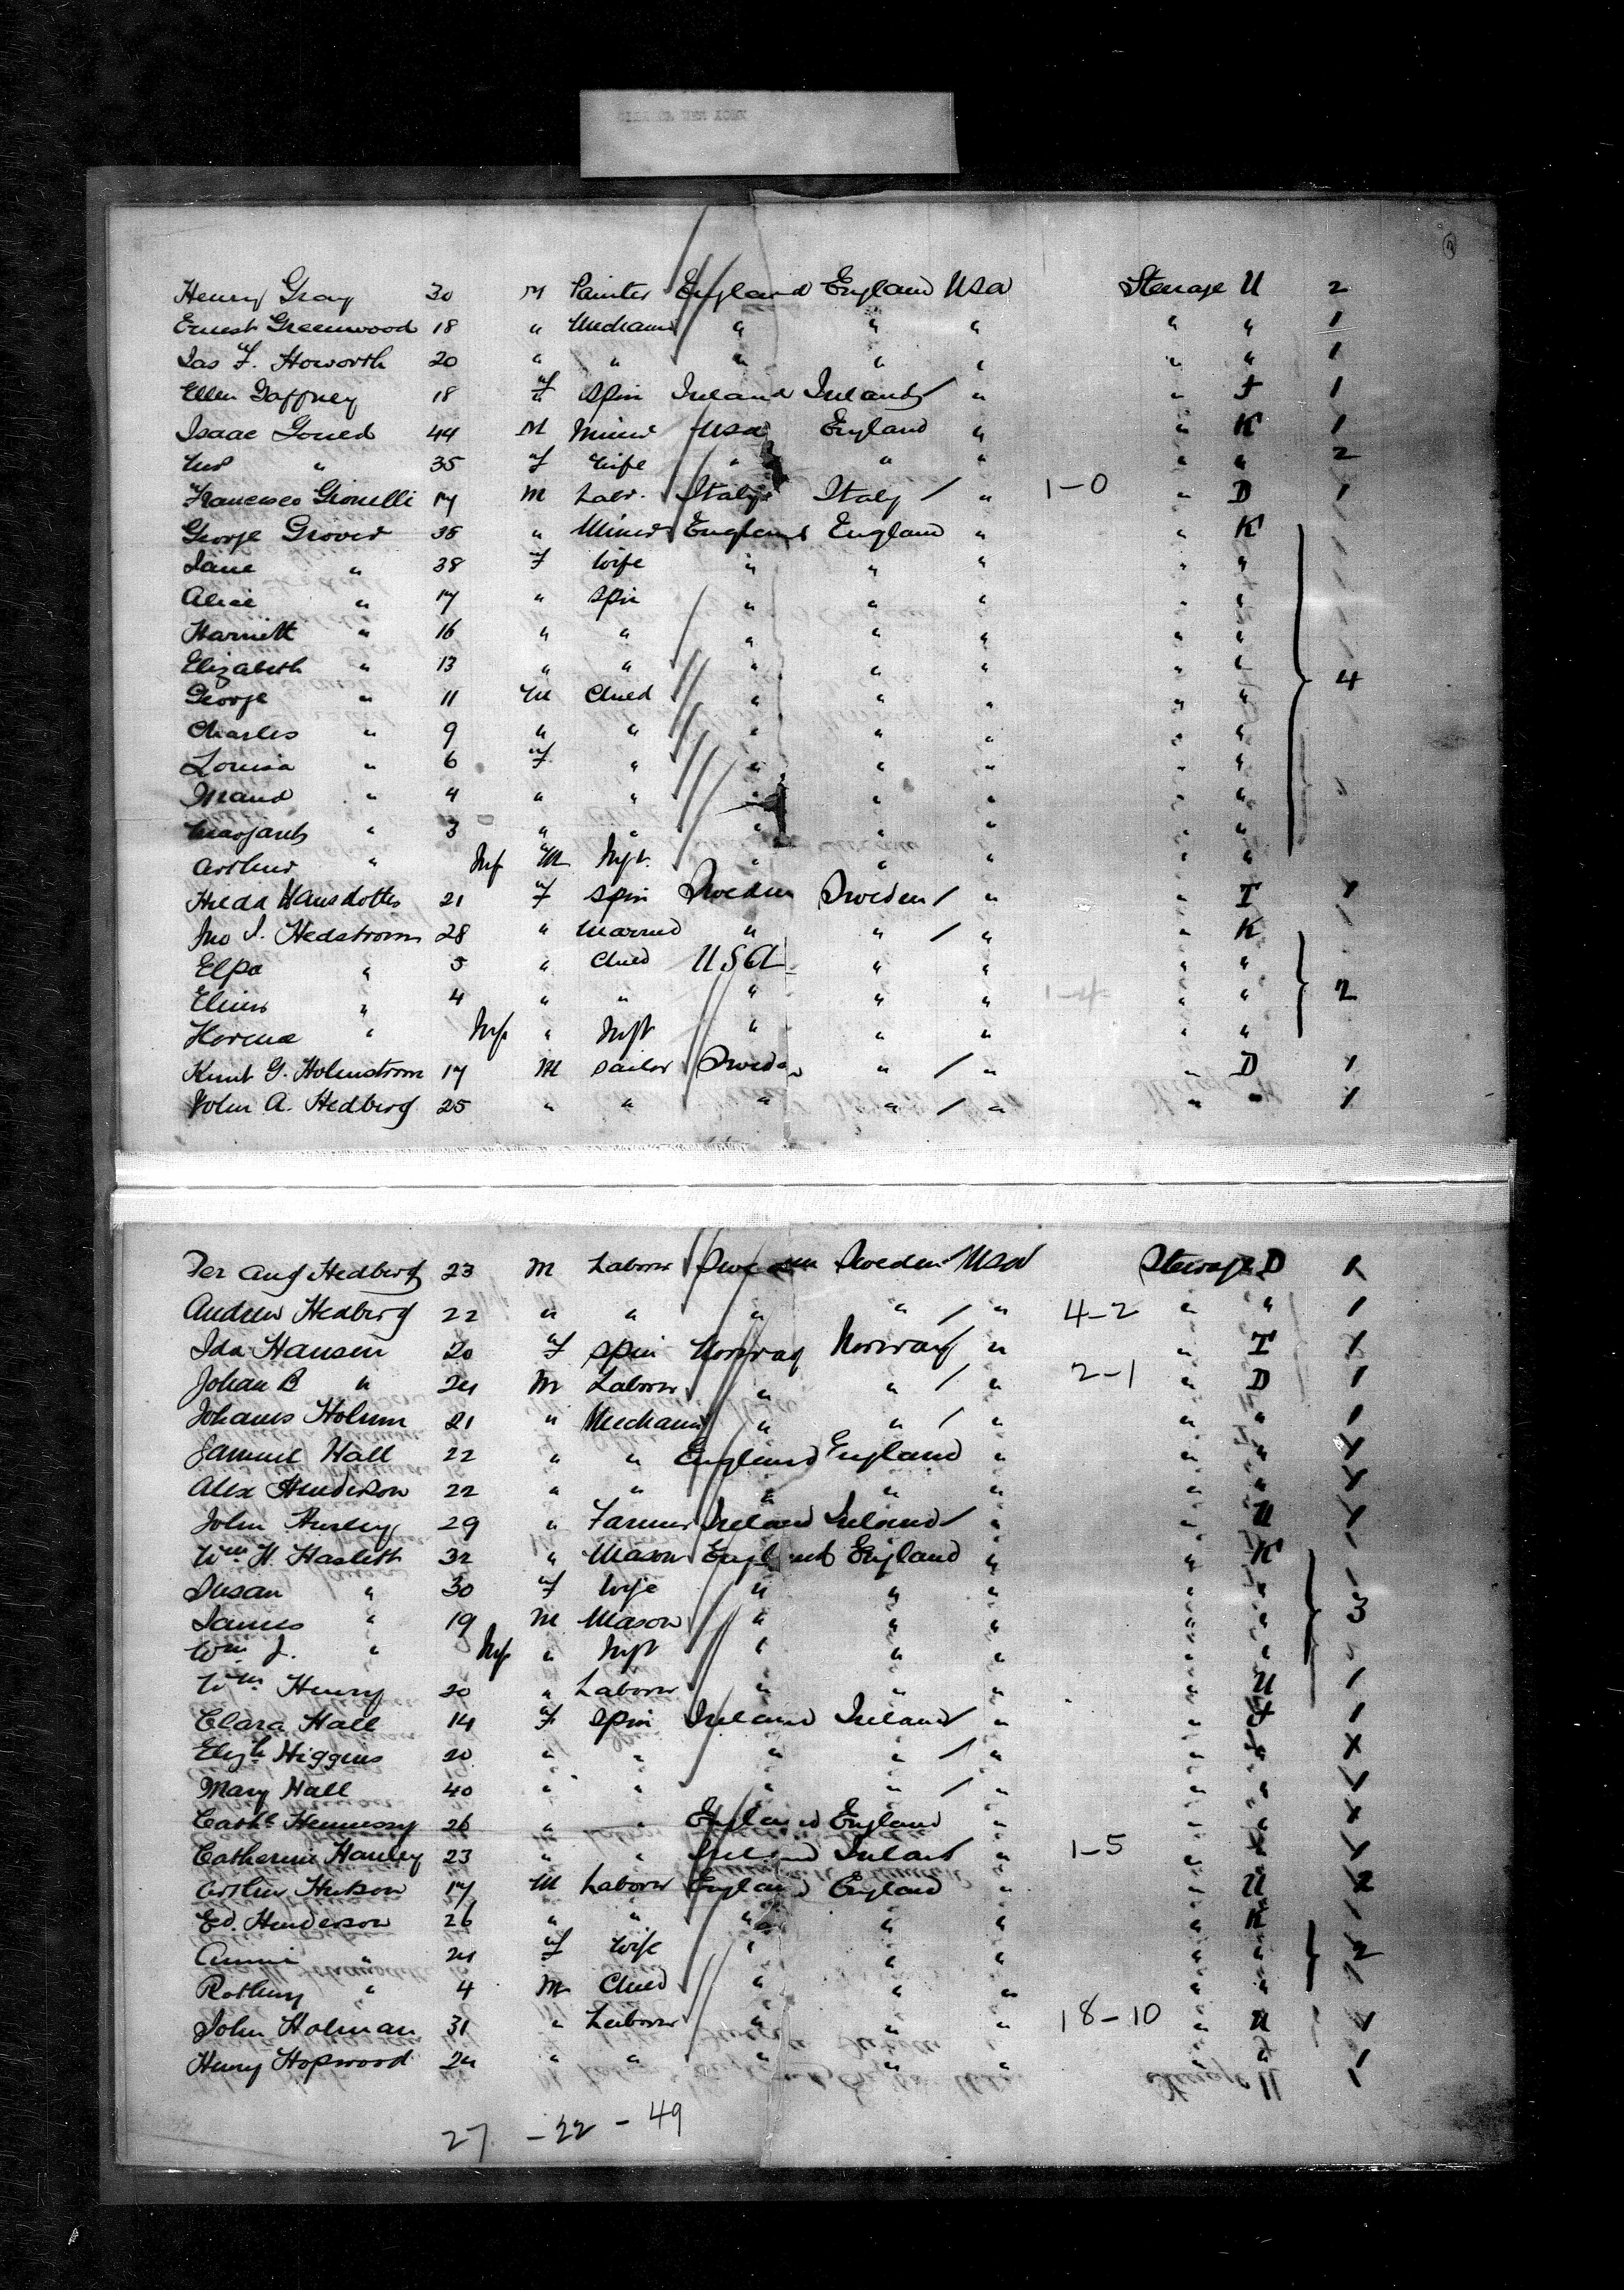 Henry Gray 30 M Painter England England USA Steerage U 2
Ernest Greenwood 18 " Mechanic " " " " " 1
Jas F. Howorth 20 " " " " " " " 1
Ellen Gaffney 18 F Spin Ireland Ireland / " " F 1
Isaac Gould 44 M Miner USA England " " K 1
Mrs " 35 F Wife " " " " " 2
Francisco Gionelli 17 M Labr. Italy Italy / " 1-0 " D 1
George Grover 38 " Miner England England " " K
Jane " 38 F Wife " " " " "
Alice " 17 " Spin " " " " "
Harriett " 16 " " " " " " "
Elizabeth " 13 " " " " " " "
George " 11 M Child " " " " " 4
Charles " 9 " " " " " " "
Louisa " 6 F " " " " " "
Maud " 4 " " " " " " "
Margaret " 3 " " " " " " "
Arthur " Inf M Inft. " " " " "
Hilda Hansdotter 21 F Spin Sweden Sweden / " " T 1
Jno I. Hedstrom 28 " Married " " / " " K
Elpa " 5 " Child USA " " " "
" 4 " " " " " 1-4 " " 2
" Inf " Inft " " " " "
Knut G. Holmstrom 17 M Sailor Sweden " / " " D 1
John A. Hedberg 25 " " " " / " " " 1
Per Aug Hedberg 23 M Laborer Sweden Sweden / USA Steerage D 1
Andrew Hedberg 22 " " " " / " 4-2 " " 1
Ida Hansen 20 F Spin Norway Norway / " " T 1
Johan B " 24 M Laborer " " / " 2-1 " D 1
Johanes Holmm 21 " Mechanic " " / " " " 1
Samuel Hall 22 " " England England " " " 1
Alex Henderson 22 " " " " " " " 1
John Hurley 29 " Farmer Ireland Ireland / " " U 1
Wm H. Haslett 32 " Mason England England " " K
Susan " 30 F Wife " " " " "
James " 19 M Mason " " " " " 3
Wm J. " Inf " Inft " " " " "
Wm Henry 20 " Laborer " " " " U 1
Clara Hall 14 F Spin Ireland Ireland / " " F 1
Elizh Higgins 20 " " " " / " " " X
Mary Hall 40 " " " " / " " " 1
Cathe Hennessy 26 " " England England " " " X
Catherine Hanley 23 " " Ireland Ireland " 1-5 " 1
Arthur Hutson 17 M Laborer England England " " U 2
Ed. Henderson 26 " " " " " " K
Annie " 24 F Wife " " " " " 2
Rothery " 4 M Child " " " " "
John Holman 31 " Laborer " " " 18-10 " U 1
Henry Hopwood 24 " " " " " " " 1
27 - 22 - 49